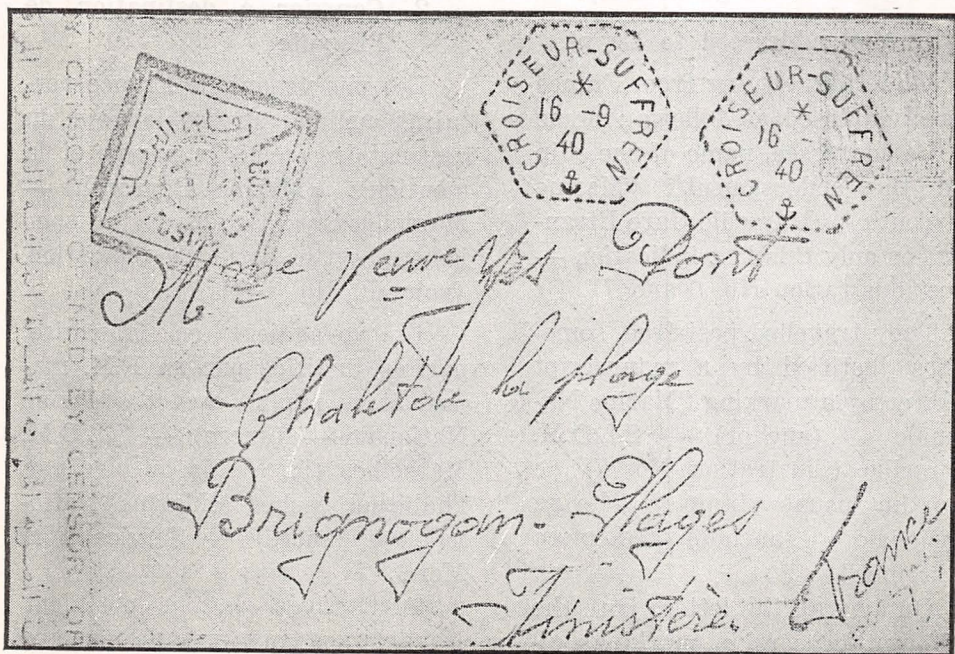 CROISEUR-SUFFREN
16 -9
40
CROISEUR-SUFFREN
16 -
40
Mme Veuve Yves Pont
Chalet de la plage
Brignogan-Plages
Finistère.
France
CENSOR